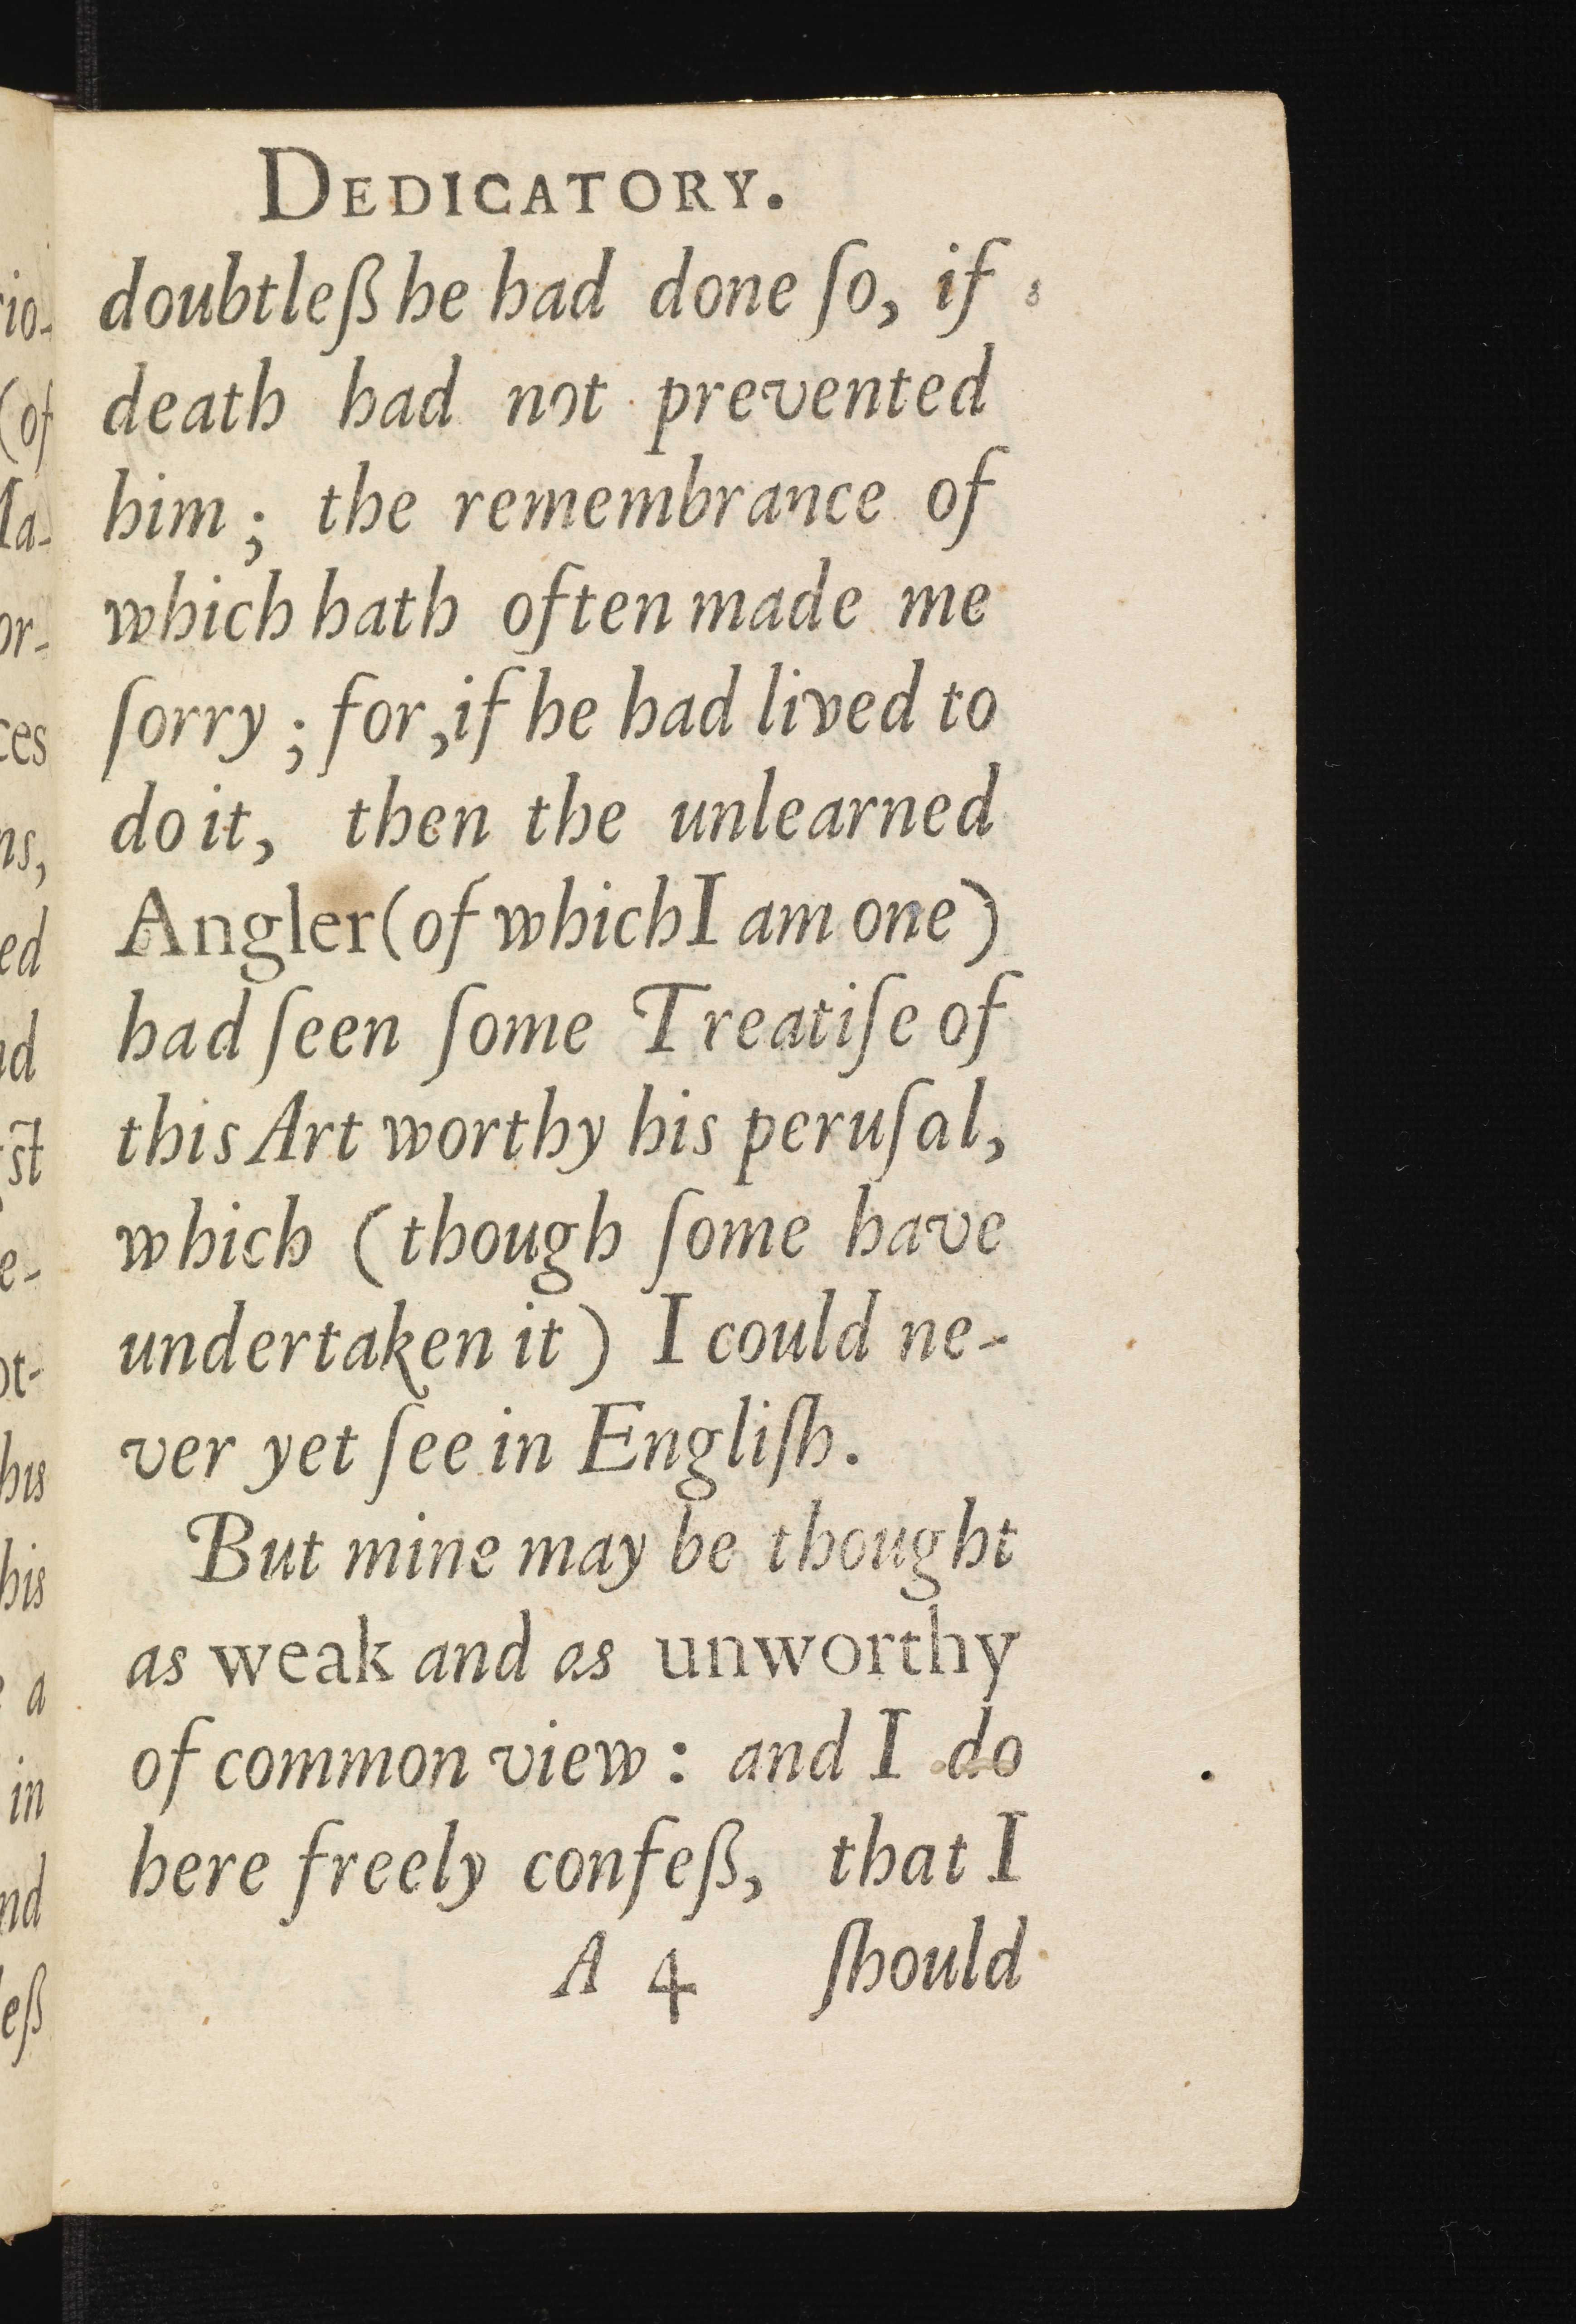 DEDICATORY.
doubtleß he had done ſo, if
death had not prevented
him; the remembrance of
which hath often made me
ſorry; for, if he had lived to
do it, then the unlearned
Angler (of which I am one)
had ſeen ſome Treatiſe of
this Art worthy his peruſal,
which (though ſome have
undertaken it) I could ne-
ver yet ſee in Engliſh.
But mine may be thought
as weak and as unworthy
of common view: and I do
here freely confeß, that I
A 4 ſhould